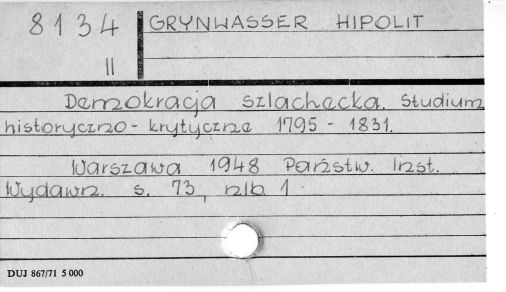 8134 GRYNWASSER HIPOLIT
II
Demokracja szlachecka. Studium
historyczno-krytyczne 1795 - 1831.
Warszawa 1948 Państw. Inst.
Wydawn. s. 73, nlb 1
DUJ 867/71 5 000